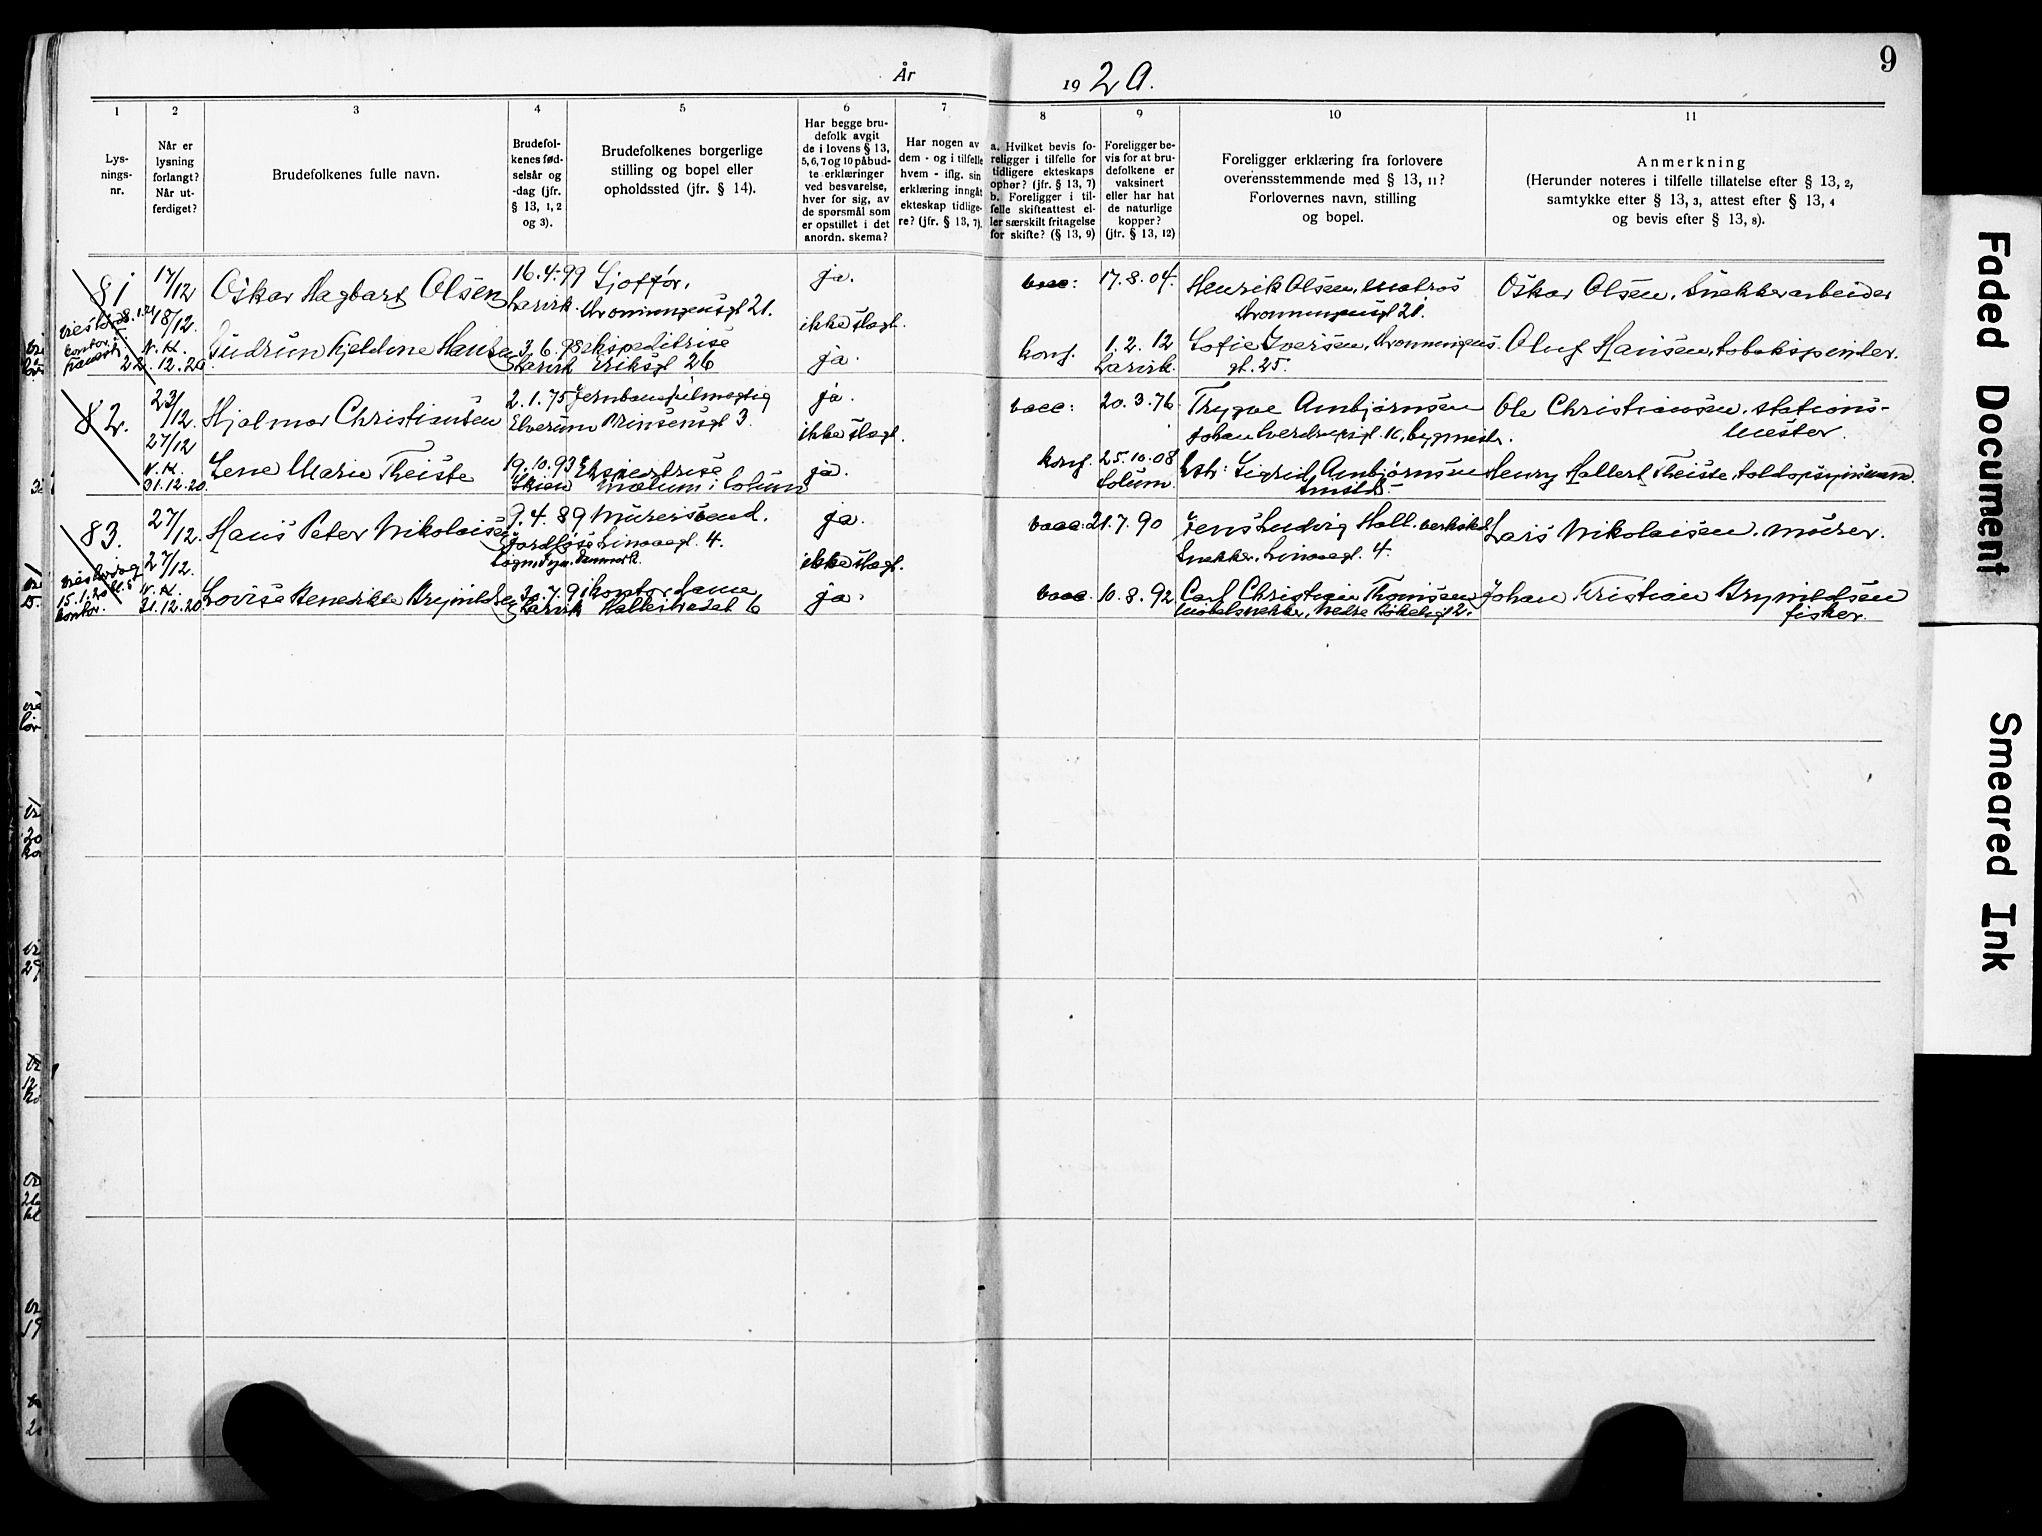 9
År 1920.
1
Lysnings-
nr.
2
Når er
lysning
forlangt?
Når ut-
ferdiget?
3
Brudefolkenes fulle navn.
4
Brudefol-
kenes fød-
selsår og
-dag (jfr.
§ 13, 1, 2
og 3).
5
Brudefolkenes borgerlige
stilling og bopel eller
opholdssted (jfr. § 14).
6
Har begge bru-
defolk avgit
de i lovens § 13,
5, 6, 7 og 10 påbud-
te erklæringer
ved besvarelse,
hver for sig, av
de spørsmål som
er opstillet i det
anordn. skema?
7
Har nogen av
dem - og i tilfelle
hvem - iflg. sin
erklæring inngåt
ekteskap tidlige-
re? (jfr. § 13, 7).
8
a. Hvilket bevis fo-
religger i tilfelle for
tidligere ekteskaps
ophør? (jfr. § 13, 7)
b. Foreligger i til-
felle skifteattest el-
ler særskilt fritagelse
for skifte? (§ 13, 9)
9
Foreligger be-
vis for at bru-
defolkene er
vaksinert
eller har hat
de naturlige
kopper?
(jfr. § 13, 12)
10
Foreligger erklæring fra forlovere
overensstemmende med § 13, 11?
Forlovernes navn, stilling
og bopel.
11
Anmerkning
(Herunder noteres i tilfelle tillatelse efter § 13, 2,
samtykke efter § 13, 3, attest efter § 13, 4
og bevis efter § 13, 8).
81
17/12
18/12.
N.K.
22.12.20
Oskar Hagbart Olsen
16.4.99
Larvik.
Sjoffør,
Dronningensgt 21.
ja.
ikke slagt.
vacc:
17.8.04.
Henrik Olsen, matros
Dronningensgt 21.
Oskar Olsen, Snekkerarbeider
Gudrun Kjeldine Hansen
3.6.98
Larvik
ekspeditrise
Eriksgt 26
ja.
konf.
1.2.12
Larvik.
Sofie Iversen, Dronningens
gt. 25.
Oluf Hansen, tobakspinder.
82.
23/12.
27/12
N.K.
31.12.20.
Hjalmar Christiansen
2.1.75
Elverum
Jernbanefulmegtig
Prinsensgt 3.
ja.
ikke slagt.
vacc:
20.3.76
Trygve Anbjørnsen
Johan Sverdrupsgt. 16, bygmestr.
Ole Christiansen, stations-
mester.
Lene Marie Theiste
19.10.93
Skien
Ekspeditrise
Mælum i Solum
ja.
konf.
25.10.08
Solum.
hstr: Sigrid Anbjørnsen
Henry Hallert Theiste, toldopsynsmann.
83.
27/12.
27/12.
N.K.
31.12.20
Hans Peter Nikolaisen
9.4.89
Jordløse
sogn, Fyn, Danmark.
Murersvend.
Linaaegt. 4.
ja.
ikke slagt.
vacc:
21.7.90
Jens Ludvig Holl. verksted
Snekker, Linaaegt. 4.
Lars Nikolaisen, murer.
Lovise Benedikte Brynildsen
30.7.91
Larvik
kontordame
Hallesbradet 6
ja.
vacc
10.8.92
Carl Christian Thomsen
møbelsnekker, Nedre Bøkeligt 2.
Johan Kristian Brynildsen
fisker.
Faded Document
Smeared Ink